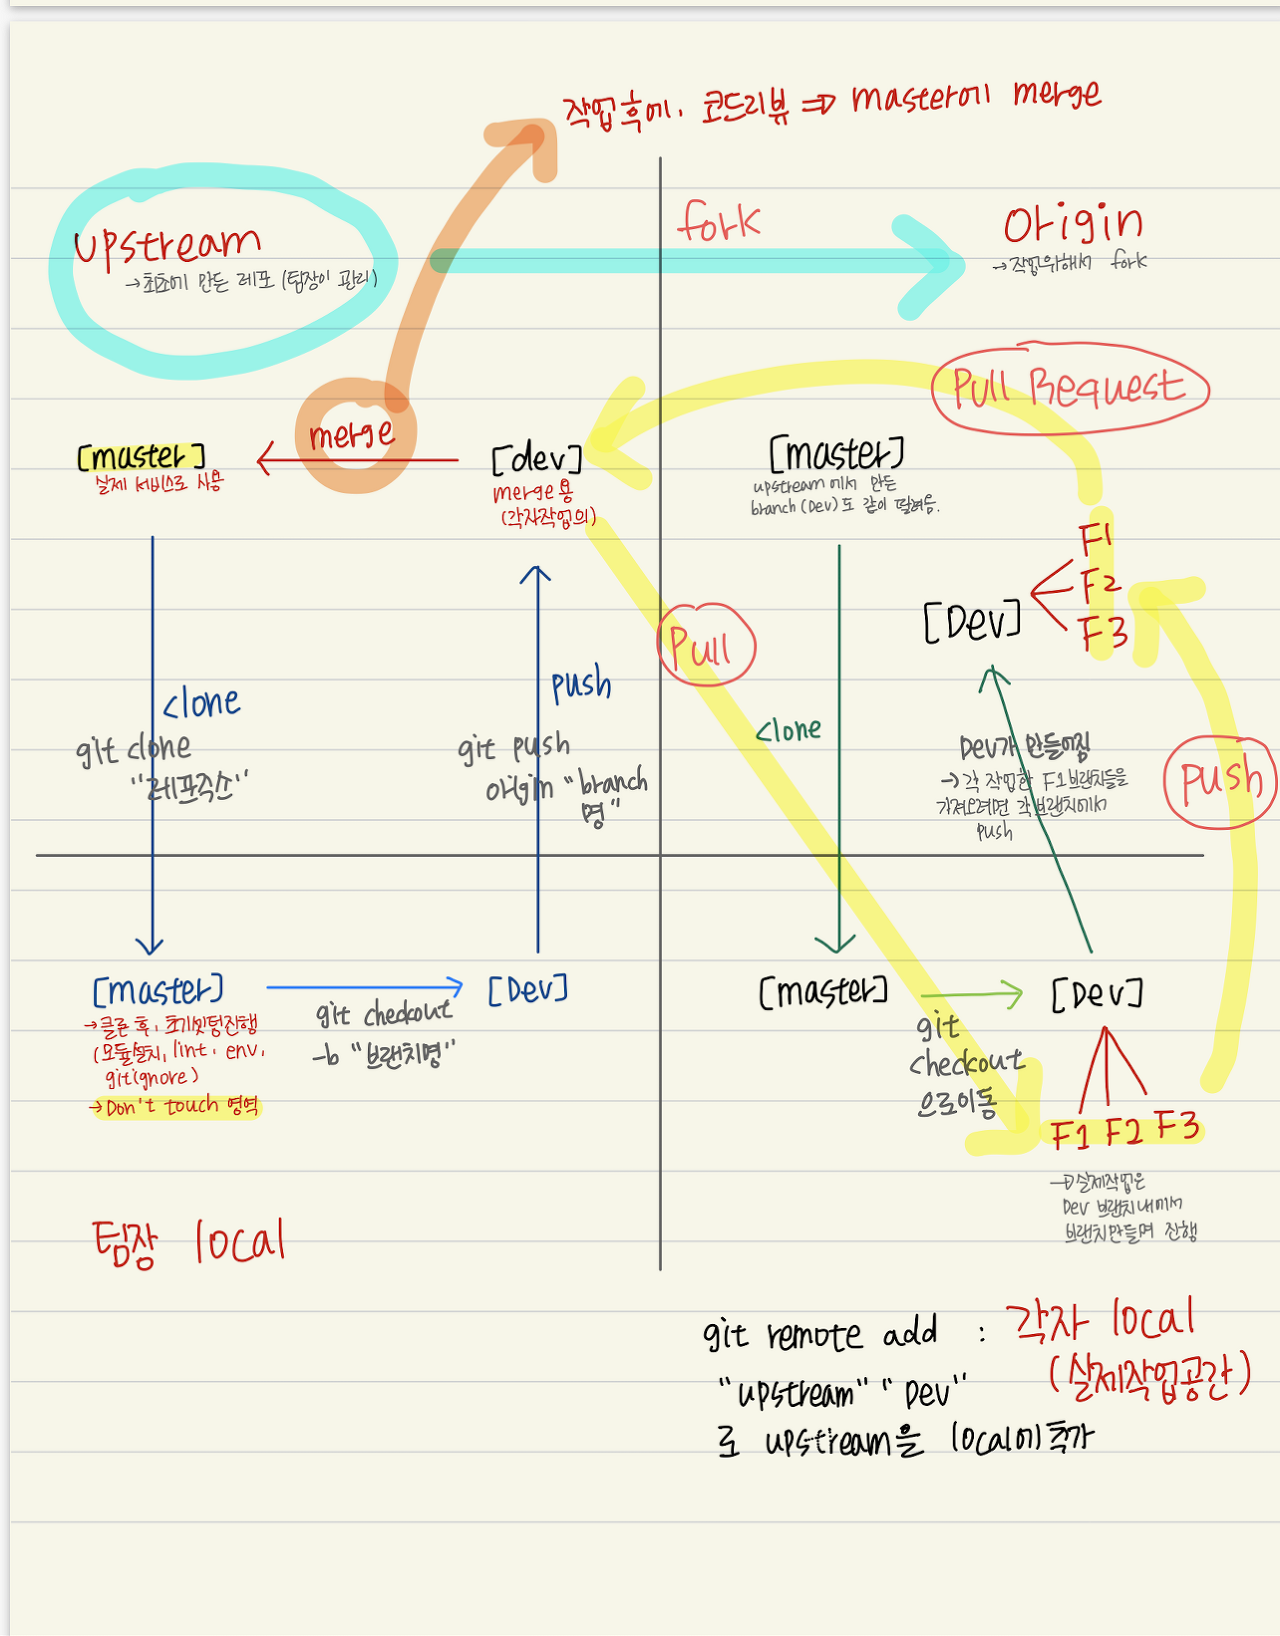 작업후에, 코드리뷰 => master에 merge
upstream
→최초에 만든 레포 (팀장이 관리)
fork
Origin
→작업위해서 fork
Pull Request
[master]
실제 서비스로 사용
merge
[dev]
merge용
(각자작업의)
[master]
upstream에서 만든
branch (Dev)도 같이 딸려옴.
F1
F2
F3
[Dev]
Pull
clone
git clone
"레포주소"
push
git push
origin "branch
명"
clone
Dev가 만들어짐
→ 각 작업한 F1브랜치들을
가져오려면 각 브랜치에서
push
push
[master]
→클론 후, 초기셋팅진행
(모듈설치, lint, env,
gitignore)
→Don't touch 영역
git checkout
-b "브랜치명"
[Dev]
[master]
git
checkout
으로이동
[Dev]
F1 F2 F3
→실제작업은
Dev 브랜치내에서
브랜치만들며 진행
팀장 local
git remote add :
"upstream" "Dev"
로 upstream을 local에 추가
각자 local
(실제작업공간)